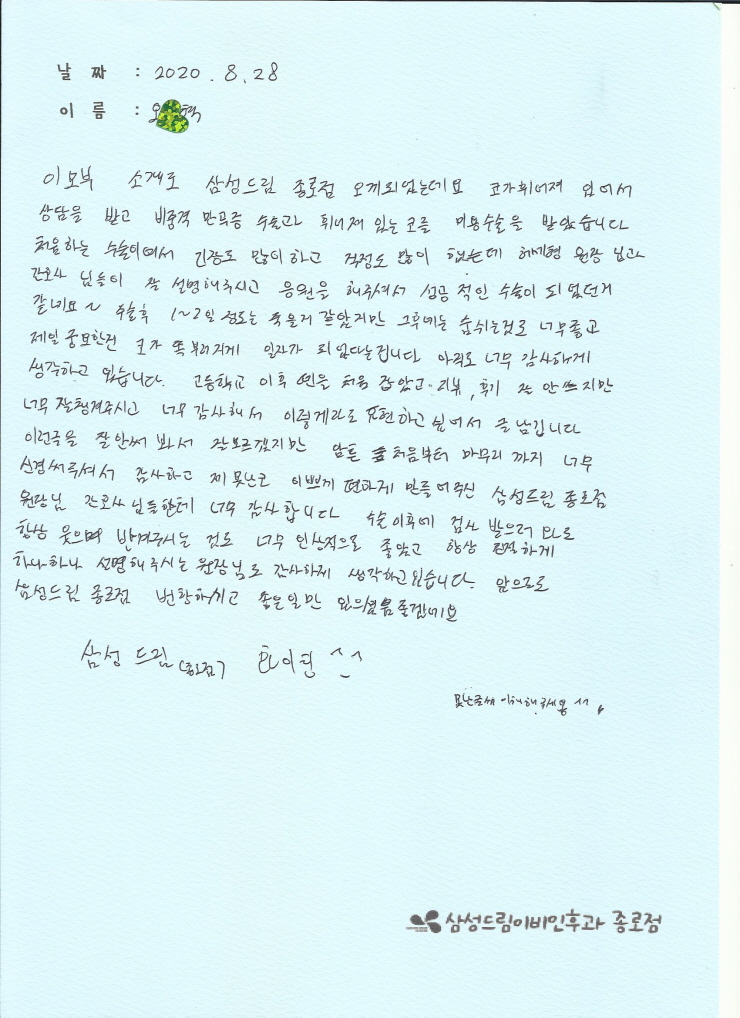 날 짜 : 2020. 8. 28
이 름 : 오 혁
이모부 소개로 삼성드림 종로점 오게되었는데요 코가휘어져 있어서
상담을 받고 비중격 만곡증 수술과 휘어져 있는 코를 미용수술을 받았습니다
처음하는 수술이여서 긴장도 많이하고 걱정도 많이 했는데 원장 님과
간호사 님들이 잘 설명해주시고 응원을 해주셔서 성공 적인 수술이 되 었던거
같네요~ 수술후 1~2일 정도는 죽을거 같았지만 그후에는 숨쉬는것도 너무좋고
제일 중요한건 코가 똑 부러지게 일자가 되었다는겁니다 아직도 너무 감사하게
생각하고 있습니다. 고등학교 이후 펜을 처음 잡았고 리뷰, 후기 잘 안쓰지만
너무 잘챙겨주시고 너무 감사해서 이렇게라도 표현하고 싶어서 글 남깁니다
이런글을 잘안써 봐서 잘모르겠지만 암튼 처음부터 마무리 까지 너무
신경써주셔서 감사하고 제 못난코 이쁘게 편하게 만들어주신 삼성드림 종로점
원장님 간호사 님들한테 너무 감사 합니다 수술이후에 검사 받으러 가도
항상 웃으며 반겨주시는 것도 너무 인상적으로 좋았고 항상 친절하게
하나하나 설명해주시는 원장님도 감사하게 생각하고있습니다. 앞으로도
삼성드림 종로점 번창하시고 좋은일만 있으셨음좋겠네요
삼성 드림 (종로점) 화이팅 ^_^
못난글씨 이해해주세용 ^^
삼성드림이비인후과 종로점